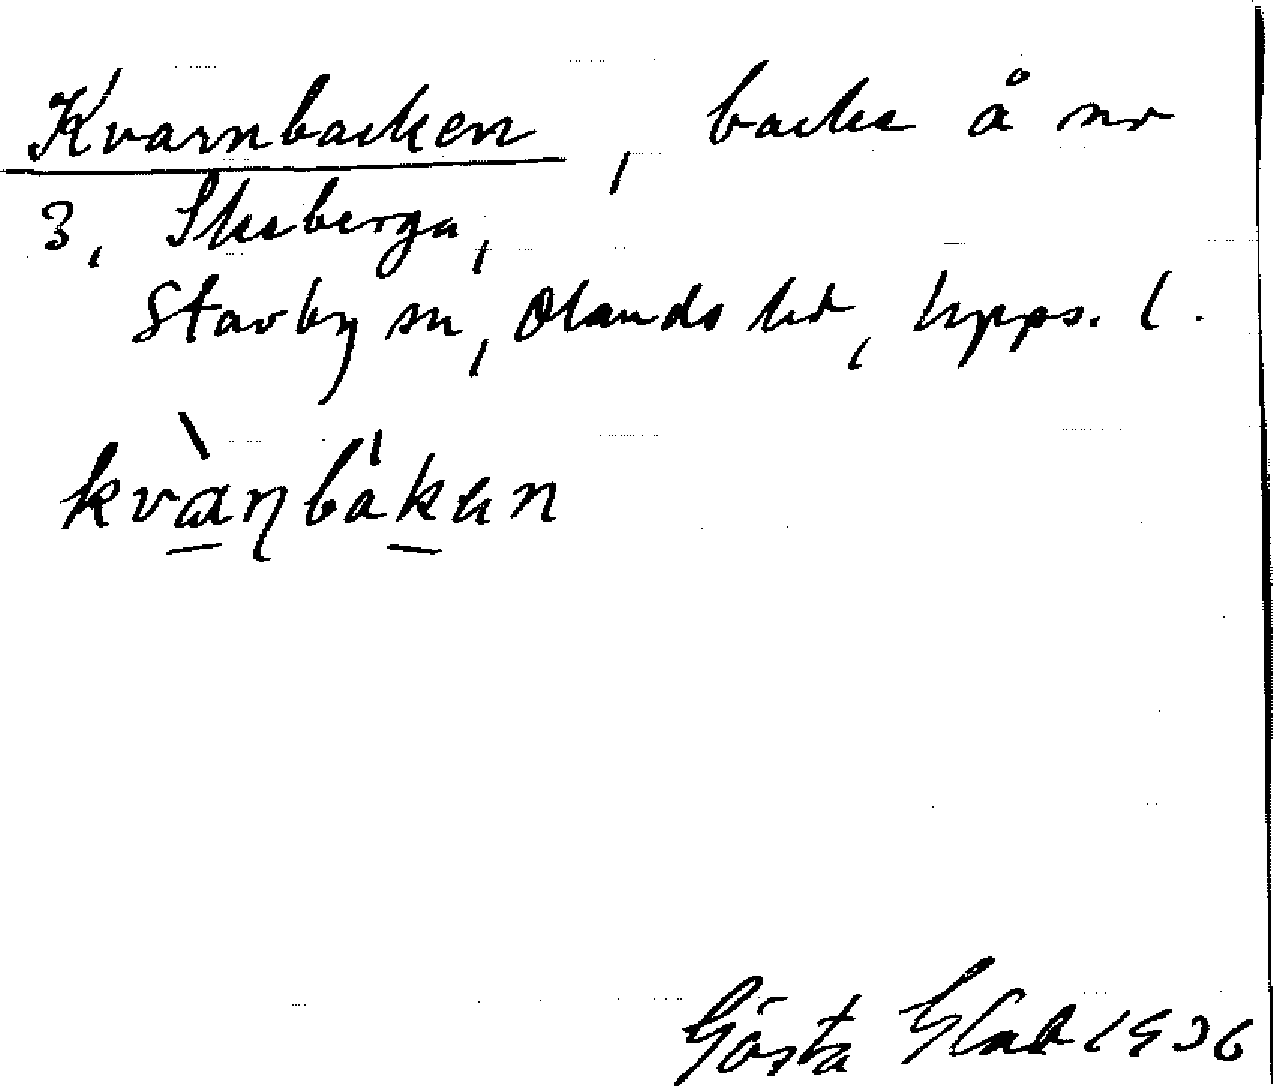 Kvarnbacken, backe å nr
3, Skaberga,
Stavby sn, Olands hd, Upps. l.
kvàɳbákan
Gösta Glad 1936